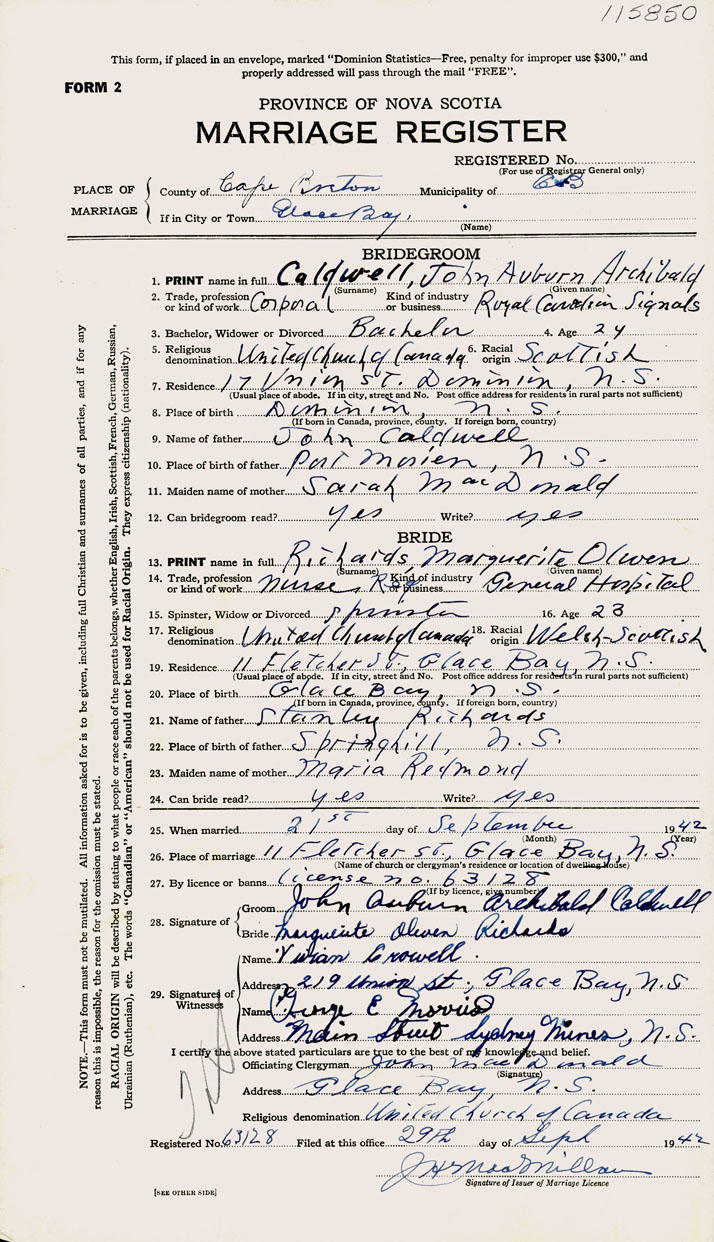 115850
This form, if placed in an envelope, marked "Dominion Statistics—Free, penalty for improper use $300," and
properly addressed will pass through the mail "FREE".
FORM 2
PROVINCE OF NOVA SCOTIA
MARRIAGE REGISTER
REGISTERED No.
(For use of Registrar General only)
PLACE OF MARRIAGE
County of Cape Breton Municipality of CB
If in City or Town Glace Bay,
(Name)
BRIDEGROOM
1. PRINT name in full Caldwell, John Auburn Archibald
(Surname) (Given name)
2. Trade, profession or kind of work Corporal Kind of industry or business Royal Canadian Signals
3. Bachelor, Widower or Divorced Bachelor 4. Age 24
5. Religious denomination United Church of Canada 6. Racial origin Scottish
7. Residence 17 Union St. Dominion, N.S.
(Usual place of abode. If in city, street and No. Post office address for residents in rural parts not sufficient)
8. Place of birth Dominion, N.S.
(If born in Canada, province, county. If foreign born, country)
9. Name of father John Caldwell
10. Place of birth of father Port Morien, N.S.
11. Maiden name of mother Sarah MacDonald
12. Can bridegroom read? yes Write? yes
BRIDE
13. PRINT name in full Richards Marguerite Olwen
(Surname) (Given name)
14. Trade, profession or kind of work Nurse, Reg Kind of industry or business General Hospital
15. Spinster, Widow or Divorced Spinster 16. Age 23
17. Religious denomination United Church of Canada 18. Racial origin Welsh-Scottish
19. Residence 11 Fletcher St., Glace Bay, N.S.
(Usual place of abode. If in city, street and No. Post office address for residents in rural parts not sufficient)
20. Place of birth Glace Bay, N.S.
(If born in Canada, province, county. If foreign born, country)
21. Name of father Stanley Richards
22. Place of birth of father Springhill, N.S.
23. Maiden name of mother Maria Redmond
24. Can bride read? yes Write? yes
25. When married 21st day of September 1942
(Month) (Year)
26. Place of marriage 11 Fletcher St., Glace Bay, N.S.
(Name of church or clergyman's residence or location of dwelling house)
27. By licence or banns License no. 63128
(If by licence, give number)
28. Signature of Groom John Auburn Archibald Caldwell
Bride Marguerite Olwen Richards
29. Signatures of Witnesses Name Vivian Crowell.
Address 219 Union St., Glace Bay, N.S
Name George E Morris
Address Main Street Sydney Mines, N.S.
I certify the above stated particulars are true to the best of my knowledge and belief.
Officiating Clergyman John MacDonald
(Signature)
Address Glace Bay, N.S.
Religious denomination United Church of Canada
Registered No. 63128 Filed at this office 29th day of Sept 1942
J H MacMillan
Signature of Issuer of Marriage Licence
[SEE OTHER SIDE]
NOTE.—This form must not be mutilated. All information asked for is to be given, including full Christian and surnames of all parties, and if for any
reason this is impossible, the reason for the omission must be stated.
RACIAL ORIGIN will be described by stating to what people or race each of the parents belongs, whether English, Irish, Scottish, French, German, Russian,
Ukrainian (Ruthenian), etc. The words "Canadian" or "American" should not be used for Racial Origin. They express citizenship (nationality).